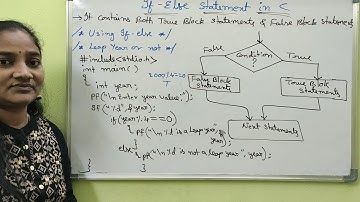 If-Else Statement in C
→ It contains Both True Block Statements & False Block Statements
/* Using If-else */
/* Leap Year or not */
#include<stdio.h>
int main()
{ int year;
pf("\n Enter year value:");
Sf("%d", &year);
if(year%4==0)
{ pf("\n %d is a leap year", year);
}
else{
pf("\n %d is not a leap year", year);
}
}
2000%4=0
T
False
Condition ?
True
False Block Statements
True Block Statements
Next Statements